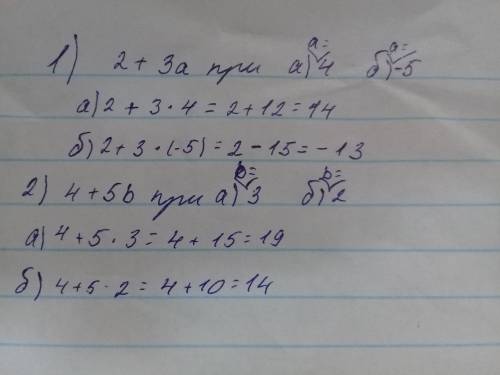 1) 2 + 3a при а) a= 4 б) a= -5
а) 2 + 3 · 4 = 2 + 12 = 14
б) 2 + 3 · (-5) = 2 - 15 = - 13
2) 4 + 5b при а) b= 3 б) b= 2
а) 4 + 5 · 3 = 4 + 15 = 19
б) 4 + 5 · 2 = 4 + 10 = 14